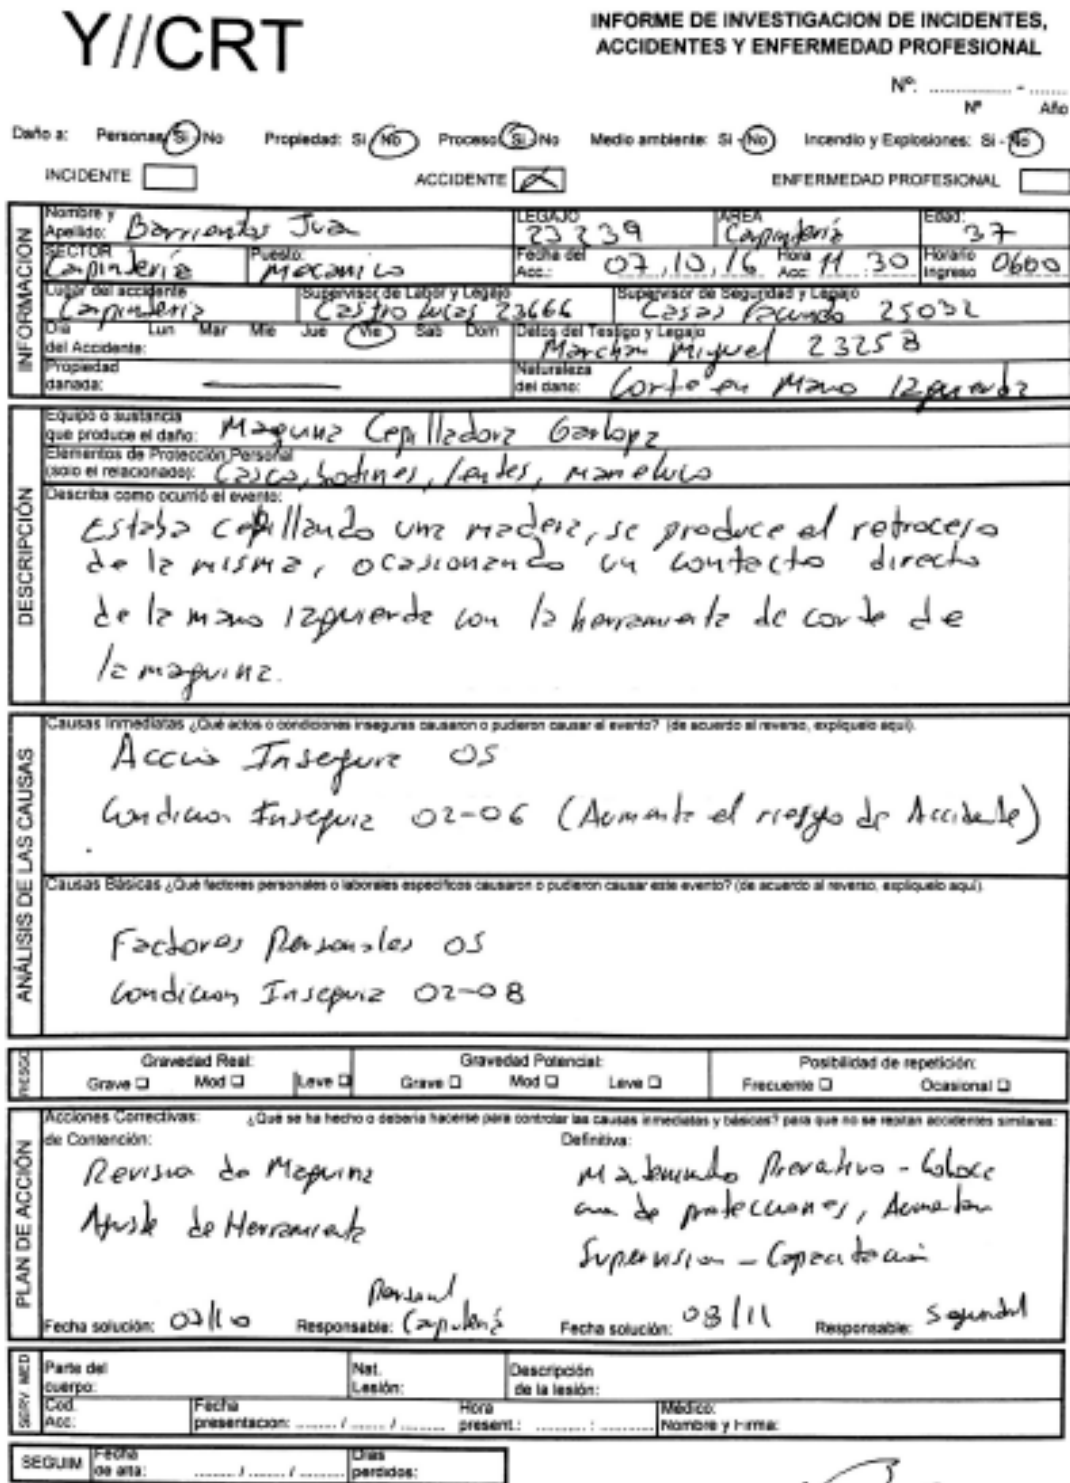 Y//CRT
INFORME DE INVESTIGACION DE INCIDENTES,
ACCIDENTES Y ENFERMEDAD PROFESIONAL
Nº: .................. - .......
Nº Año
Daño a: Personas Si No Propiedad: Si No Proceso Si No Medio ambiente: Si - No Incendio y Explosiones: Si - No
INCIDENTE ACCIDENTE X ENFERMEDAD PROFESIONAL
INFORMACION
Nombre y Apellido: Barrientos Jua LEGAJO 23239 AREA Carpinteria Edad: 37
SECTOR Carpinteria Puesto: Mecanico Fecha del Acc.: 07,10,16 Hora Acc: 11 30 Horario Ingreso 0600
Lugar del accidente Carpinteria Supervisor de Labor y Legajo Castro Lucas 23666 Supervisor de Seguridad y Legajo Casas Facundo 25032
Dia del Accidente: Lun Mar Mie Jue Vie Sab Dom Datos del Testigo y Legajo Marchan Miguel 23258
Propiedad danada: Naturaleza del dano: Corte en Mano Izquierda
DESCRIPCIÓN
Equipo o sustancia que produce el daño: Maquina Cepilladora Garlopa
Elementos de Protección Personal (solo el relacionado): Casco, botines, lentes, mameluco
Describa como ocurrió el evento:
Estaba cepillando una madera, se produce el retroceso
de la misma, ocasionando un contacto directo
de la mano izquierda con la herramienta de corte de
la maquina.
ANÁLISIS DE LAS CAUSAS
Causas Inmediatas ¿Qué actos o condiciones inseguras causaron o pudieron causar el evento? (de acuerdo al reverso, expliquelo aquí).
Accio Insegura 05
Condicion Insegura 02-06 (Aumenta el riesgo de Accidente)
Causas Básicas ¿Qué factores personales o laborales especificos causaron o pudieron causar este evento? (de acuerdo al reverso, expliquelo aquí).
Factores Personales 05
Condicion Insegura 02-08
RIESGO
Gravedad Real: Gravedad Potencial: Posibilidad de repetición:
Grave Mod Leve Grave Mod Leve Frecuente Ocasional
PLAN DE ACCIÓN
Acciones Correctivas: ¿Qué se ha hecho o deberia hacerse para controlar las causas inmediatas y básicas? para que no se repitan accidentes similares:
de Contención: Definitiva:
Revision de Maquina
Ajuste de Herramienta
Preventivo - Coloca
cion de protecciones, Aumentar
Supervision - Capacitacion
Fecha solución: Responsable: Personal Carpinteria Fecha solución: 08/11 Responsable:
SERV MED
Parte del cuerpo: Nat. Lesión: Descripción de la lesión:
Cod. Acc: Fecha presentacion: ....... / ....... / ....... Hora present.: ........... : ........... Médico: Nombre y Firma:
SEGUIM Fecha de alta: ....... / ....... / ....... Dias perdidos: